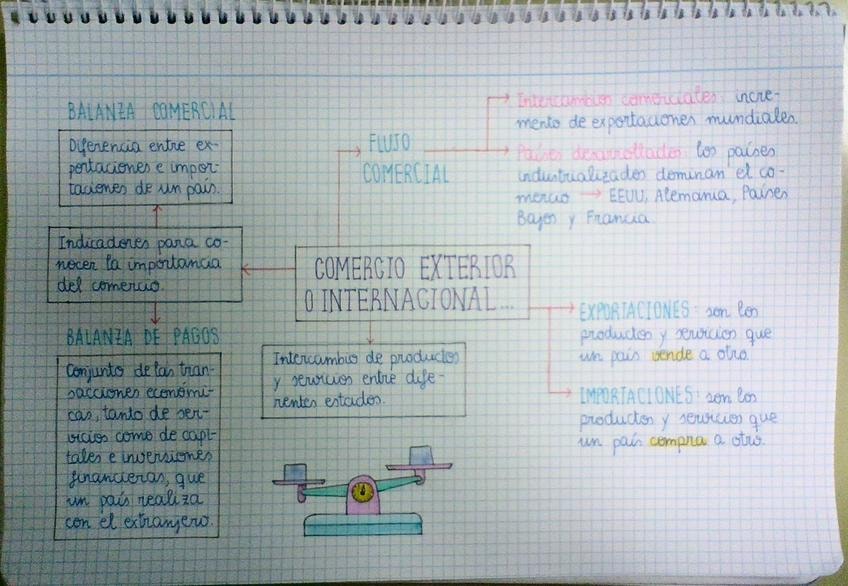 BALANZA COMERCIAL
Diferencia entre ex-
portaciones e impor-
taciones de un país.
Indicadores para co-
nocer la importancia
del comercio.
BALANZA DE PAGOS
Conjunto de las tran-
sacciones económi-
cas, tanto de ser-
vicios como de capi-
tales e inversiones
financieras, que
un país realiza
con el extranjero.
FLUJO
COMERCIAL
Intercambios comerciales: incre-
mento de exportaciones mundiales.
Países desarrollados: los países
industrializados dominan el co-
mercio → EEUU, Alemania, Países
Bajos y Francia.
COMERCIO EXTERIOR
O INTERNACIONAL...
Intercambio de productos
y servicios entre dife-
rentes estados.
EXPORTACIONES: son los
productos y servicios que
un país vende a otro.
IMPORTACIONES: son los
productos y servicios que
un país compra a otro.